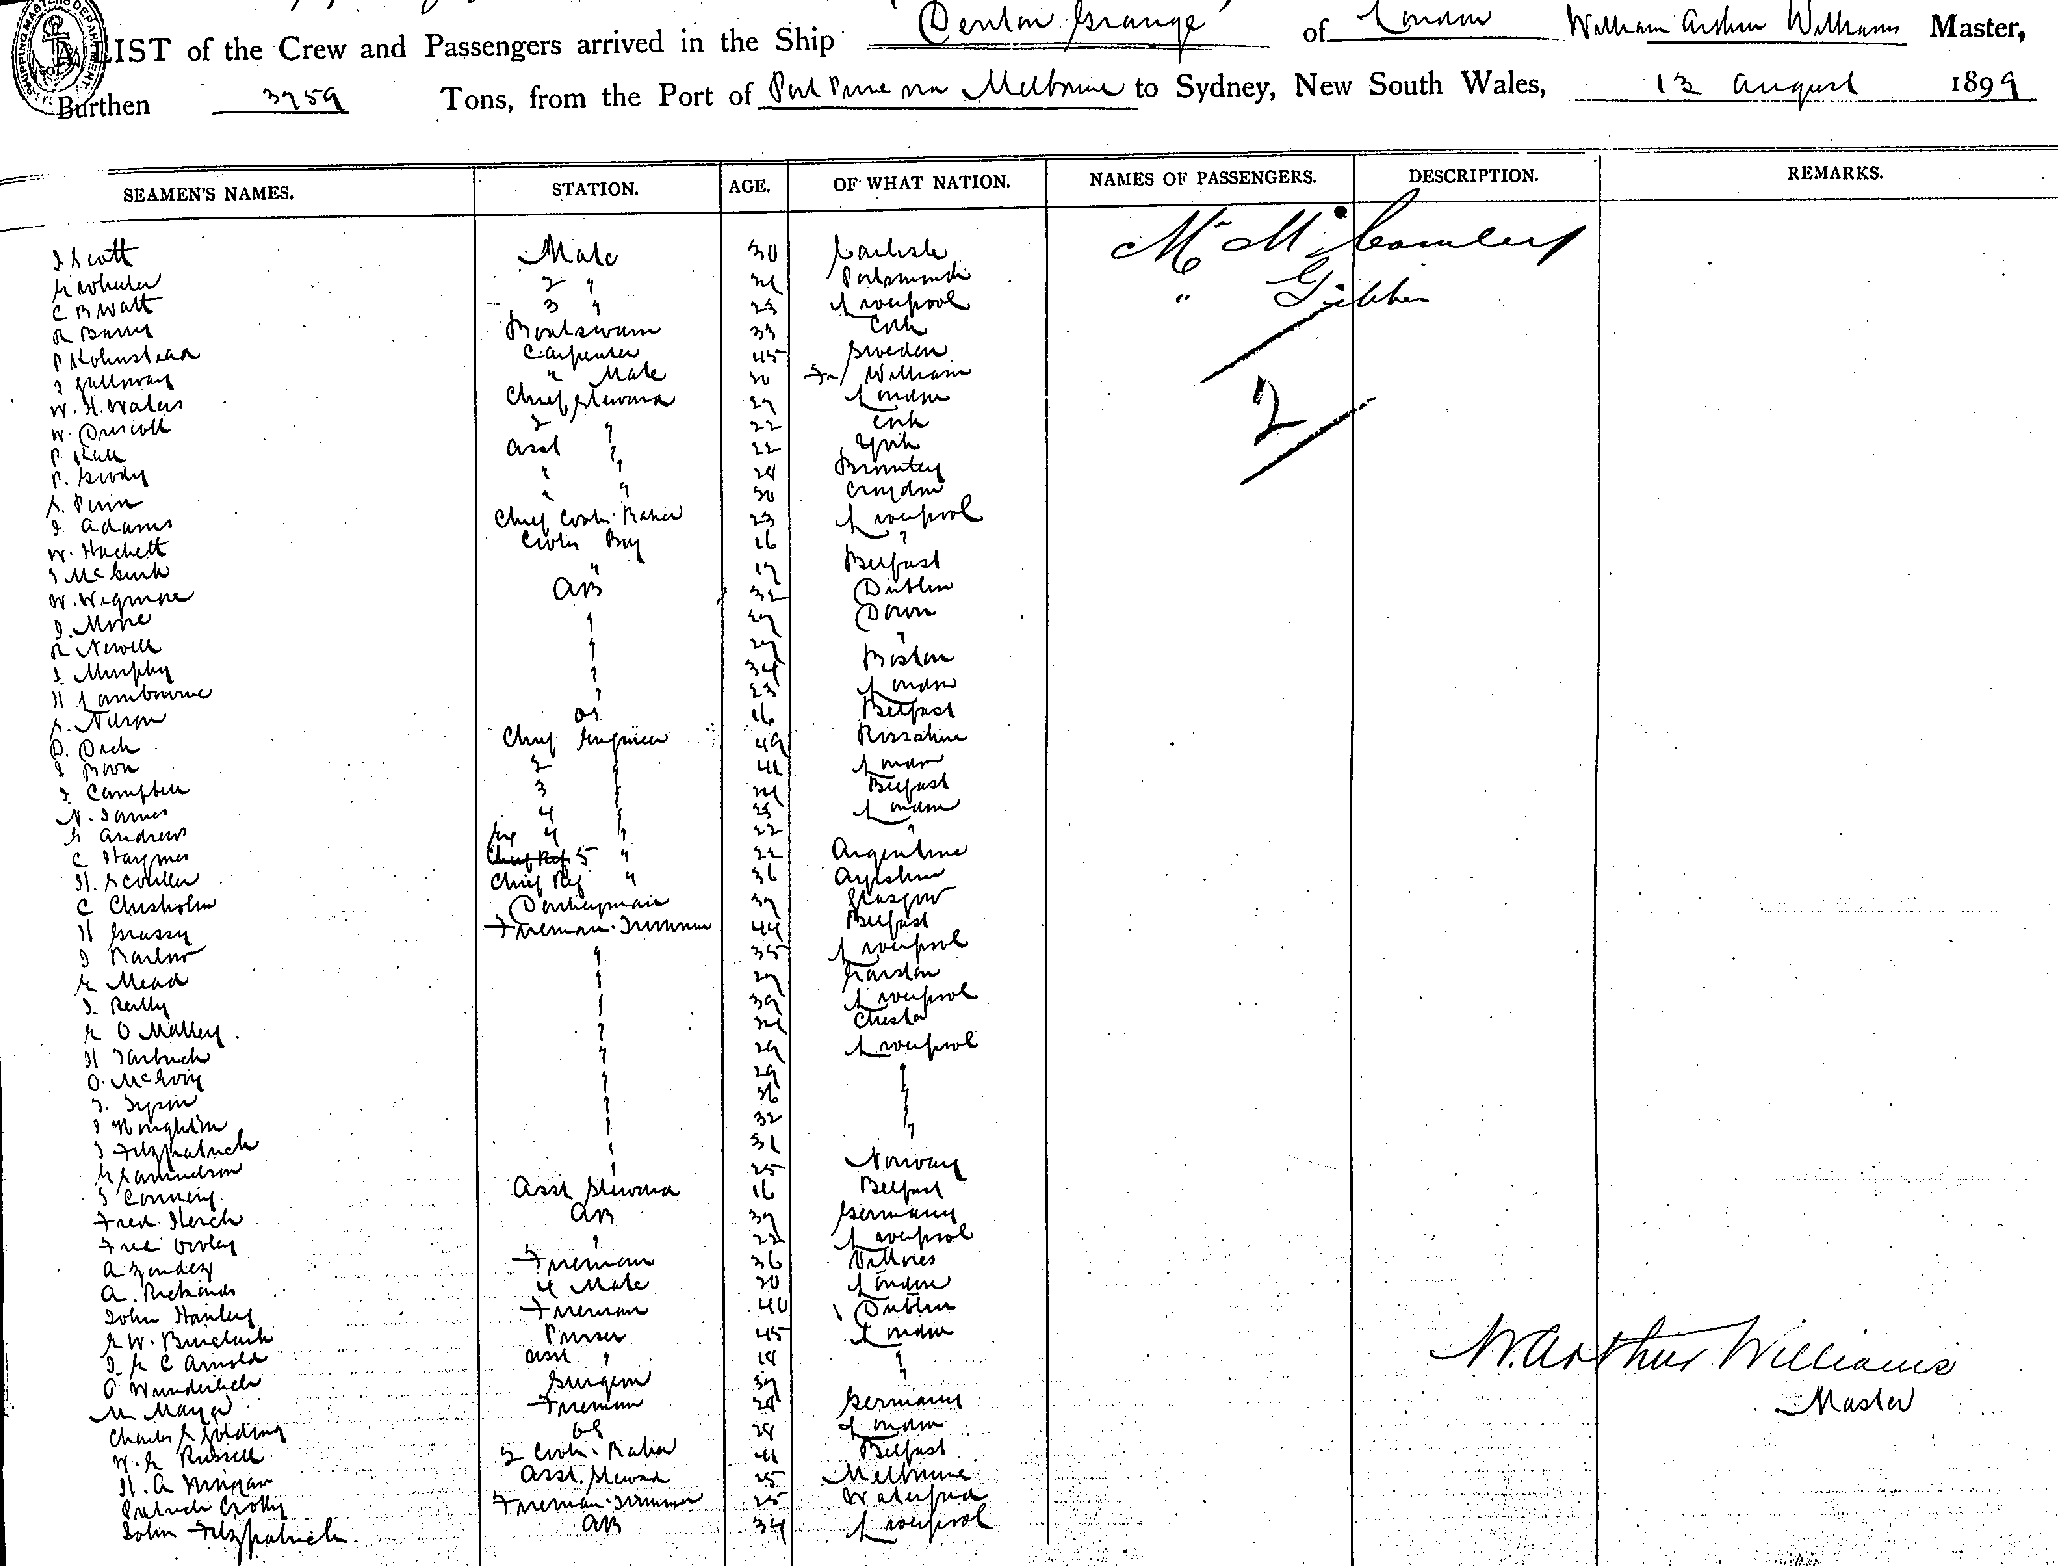 A LIST of the Crew and Passengers arrived in the Ship "Denton Grange" of London William Arthur Williams Master,
Burthen 3759 Tons, from the Port of Port Pirie via Melbourne to Sydney, New South Wales, 13 August 1899
SEAMEN'S NAMES. STATION. AGE. OF WHAT NATION. NAMES OF PASSENGERS. DESCRIPTION. REMARKS.
J Scott Mate 30 Carlisle
E Wheeler 2 " Portsmouth
C B Watt 3 " 23 Liverpool
R Barry Boatswain 33 Cork
P Holmstead Carpenter 45 Sweden
J Galloway " Mate 20 Ft William
W. H. Waters Chief Steward 27 London
W. Driscoll 2 " 22 Cork
P Hall Asst " 22 York
P. Grody " " 24 Bromley
" " 30 Croydon
J Adams Chief Cook & Baker 23 Liverpool
W. Hackett Cooks Boy 16 "
J McGurk " 17 Belfast
W. Wigmore AB 32 Dublin
J. More " 27 Down
R Newell " 27 "
J Murphy " 34 Boston
H Lambourne " 23 London
OS 16 Belfast
D. Chief Engineer 49 Rosshire
J Boon 2 " 41 London
J. Campbell 3 " Belfast
N. James 4 " 23 London
G Andrews Ex 4 " 22 "
C Haymes Chief Ref 5 " 22 Argentine
H. Scouller Chief Ref " 36 Ayrshire
C Chisholm Donkeyman 37 Glasgow
H Grassy Fireman & Trimmer 44 Belfast
J Barlow " 35 Liverpool
E Mead " 27 Garston
J. Reilly " 39 Liverpool
E O Malley " Chester
H Tarbuck " 29 Liverpool
O. McEvoy " 29 "
J. Tyson " 36 "
J Houghton " 32 "
J Fitzpatrick " 31 "
G Samuelson " 25 Norway
J Connery Asst Steward 16 Belfast
Fred Herch AB 37 Germany
Fred " 22 Liverpool
A Fireman 36
A. Richards 4 Mate 20 London
John Hanley Fireman 40 Dublin
E W. Purser 45 London
J. E C Arnold Asst " 18 "
O Wunderlich Surgeon 37 "
M Mayer Fireman 28 Germany
Charles E Golding OS 28 London
W. G Russell 2 Cook & Baker Belfast
H. A Asst. Steward 25 Melbourne
Patrick Crotty Fireman & Trimmer 25 Waterford
John Fitzpatrick AB 34 Liverpool
Mr
"
2
W. Arthur Williams
Master